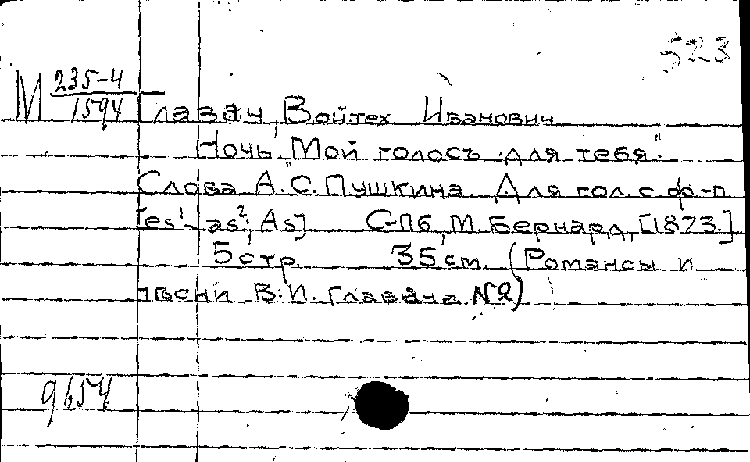 523
М 235-4/1594 Главач, Войтех Иванович
Ночь „Мой голосъ для тебя“
Слова А. С. Пушкина. Для гол. с ф-п
[es¹-as²; As] С-Пб, М. Бернард, [1873]
5 стр. 35 см. (Романсы и
пѣсни В. И. Главача №2)
9654